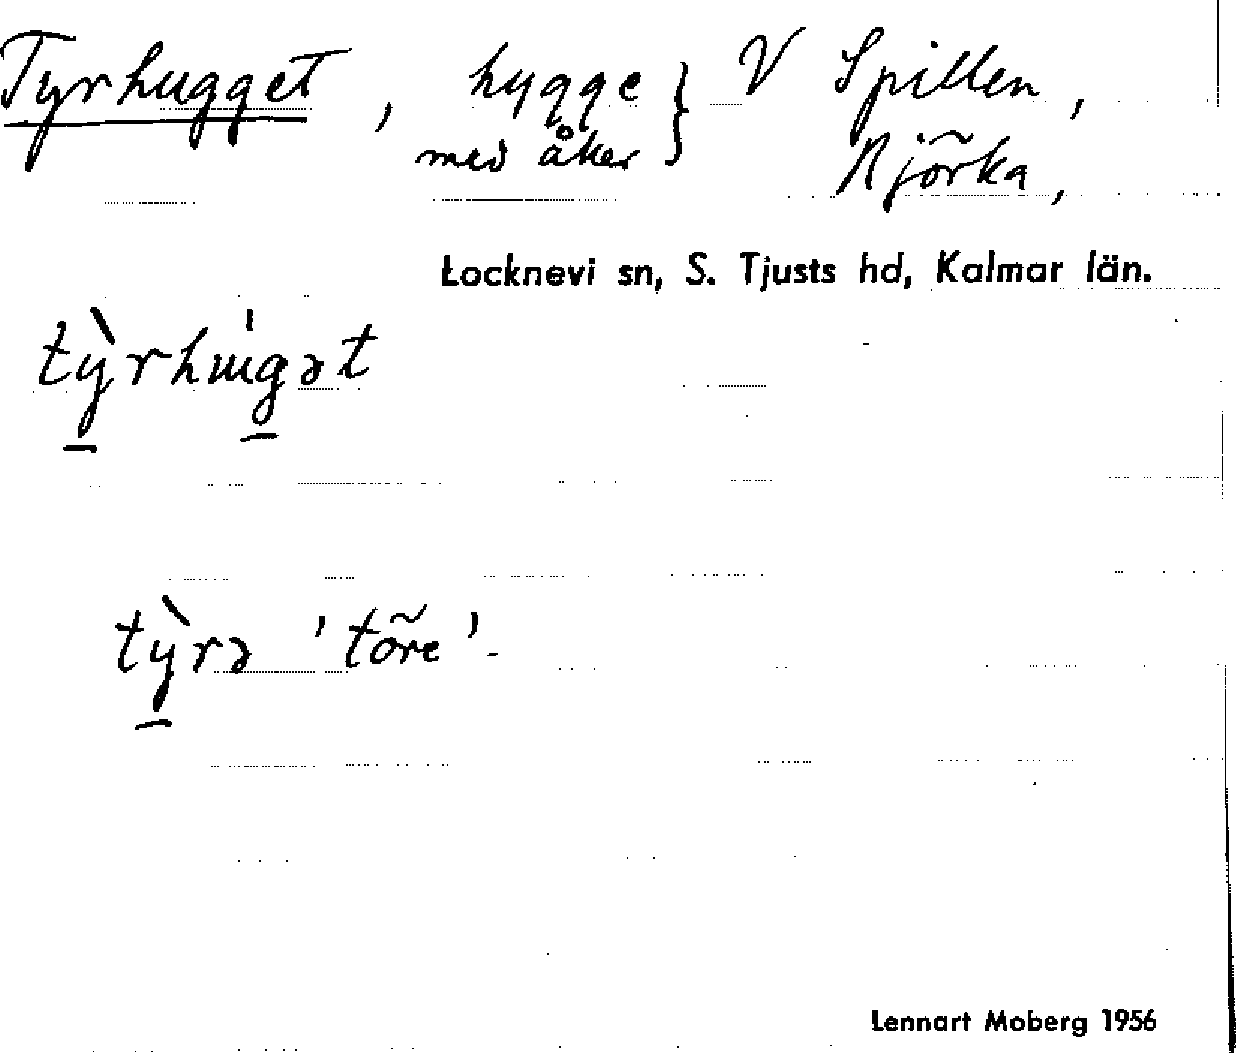 Tyrhugget, hygge } V Spillen,
med åker Njörka,
Locknevi sn, S. Tjusts hd, Kalmar län.
tỳrhɯgət
tỳrə 'töre'-
Lennart Moberg 1956